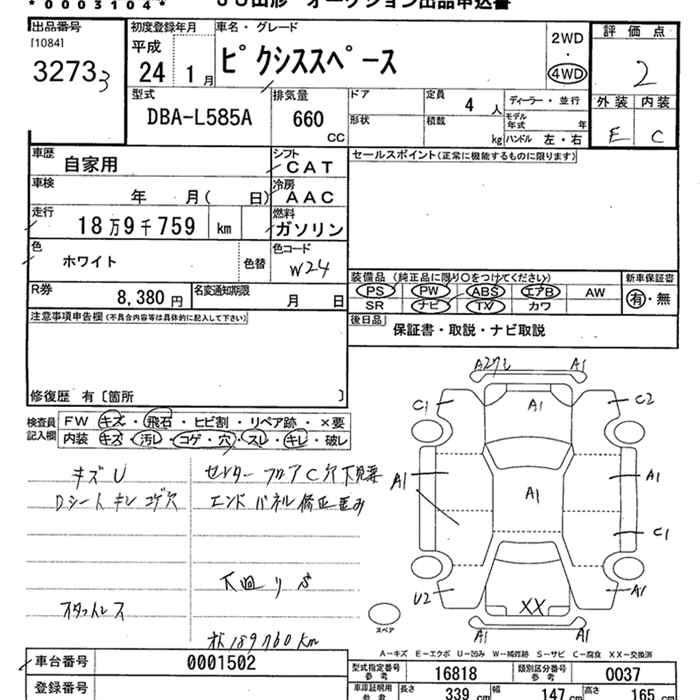 *0003104* JU山形 オークション出品申込書
出品番号 初度登録年月 車名・グレード 評価点
[1084] 平成 2WD
32733 24 1月 ピクシススペース ・ 2
4WD
外装 内装
型式 排気量 ドア 定員 4 人 ディーラー・並行
DBA-L585A 660 CC 形状 積載 kg モデル年式 年 E C
ハンドル 左・右
車歴 自家用 シフト CAT セールスポイント(正常に機能するものに限ります)
車検 年 月( 日) 冷房 AAC
走行 18万9千759 km 燃料 ガソリン
色 ホワイト 色替 色コード W24
装備品 (純正品に限り○をつけてください) 新車保証書
R券 8,380円 名変通知期限 月 日 PS PW ABS エアB AW 有・無
SR ナビ TV カワ
注意事項申告欄(不具合内容等は具体的に記入して下さい) 後日品 保証書・取説・ナビ取説
修復歴 有〔箇所 〕
検査員記入欄 FW キズ・飛石・ヒビ割・リペア跡・×要
内装 キズ・汚レ・コゲ・穴・スレ・キレ・破レ
A1 A1
C1 A1 C2
キズU センターフロアC穴下見要
Dシートキレコゲ穴 エンドパネル修正歪み
A1 A1 A1
C1
下廻りS
U2 XX A1
スタットレス
スペア A1 A1
メ189760km
A-キズ E-エクボ U-凹み W-補修跡 S-サビ C-腐食 XX-交換済
車台番号 0001502 型式指定番号 参考 16818 類別区分番号 参考 0037
登録番号 車庫証明用 参考 長さ 339 cm 幅 147 cm 高さ 165 cm